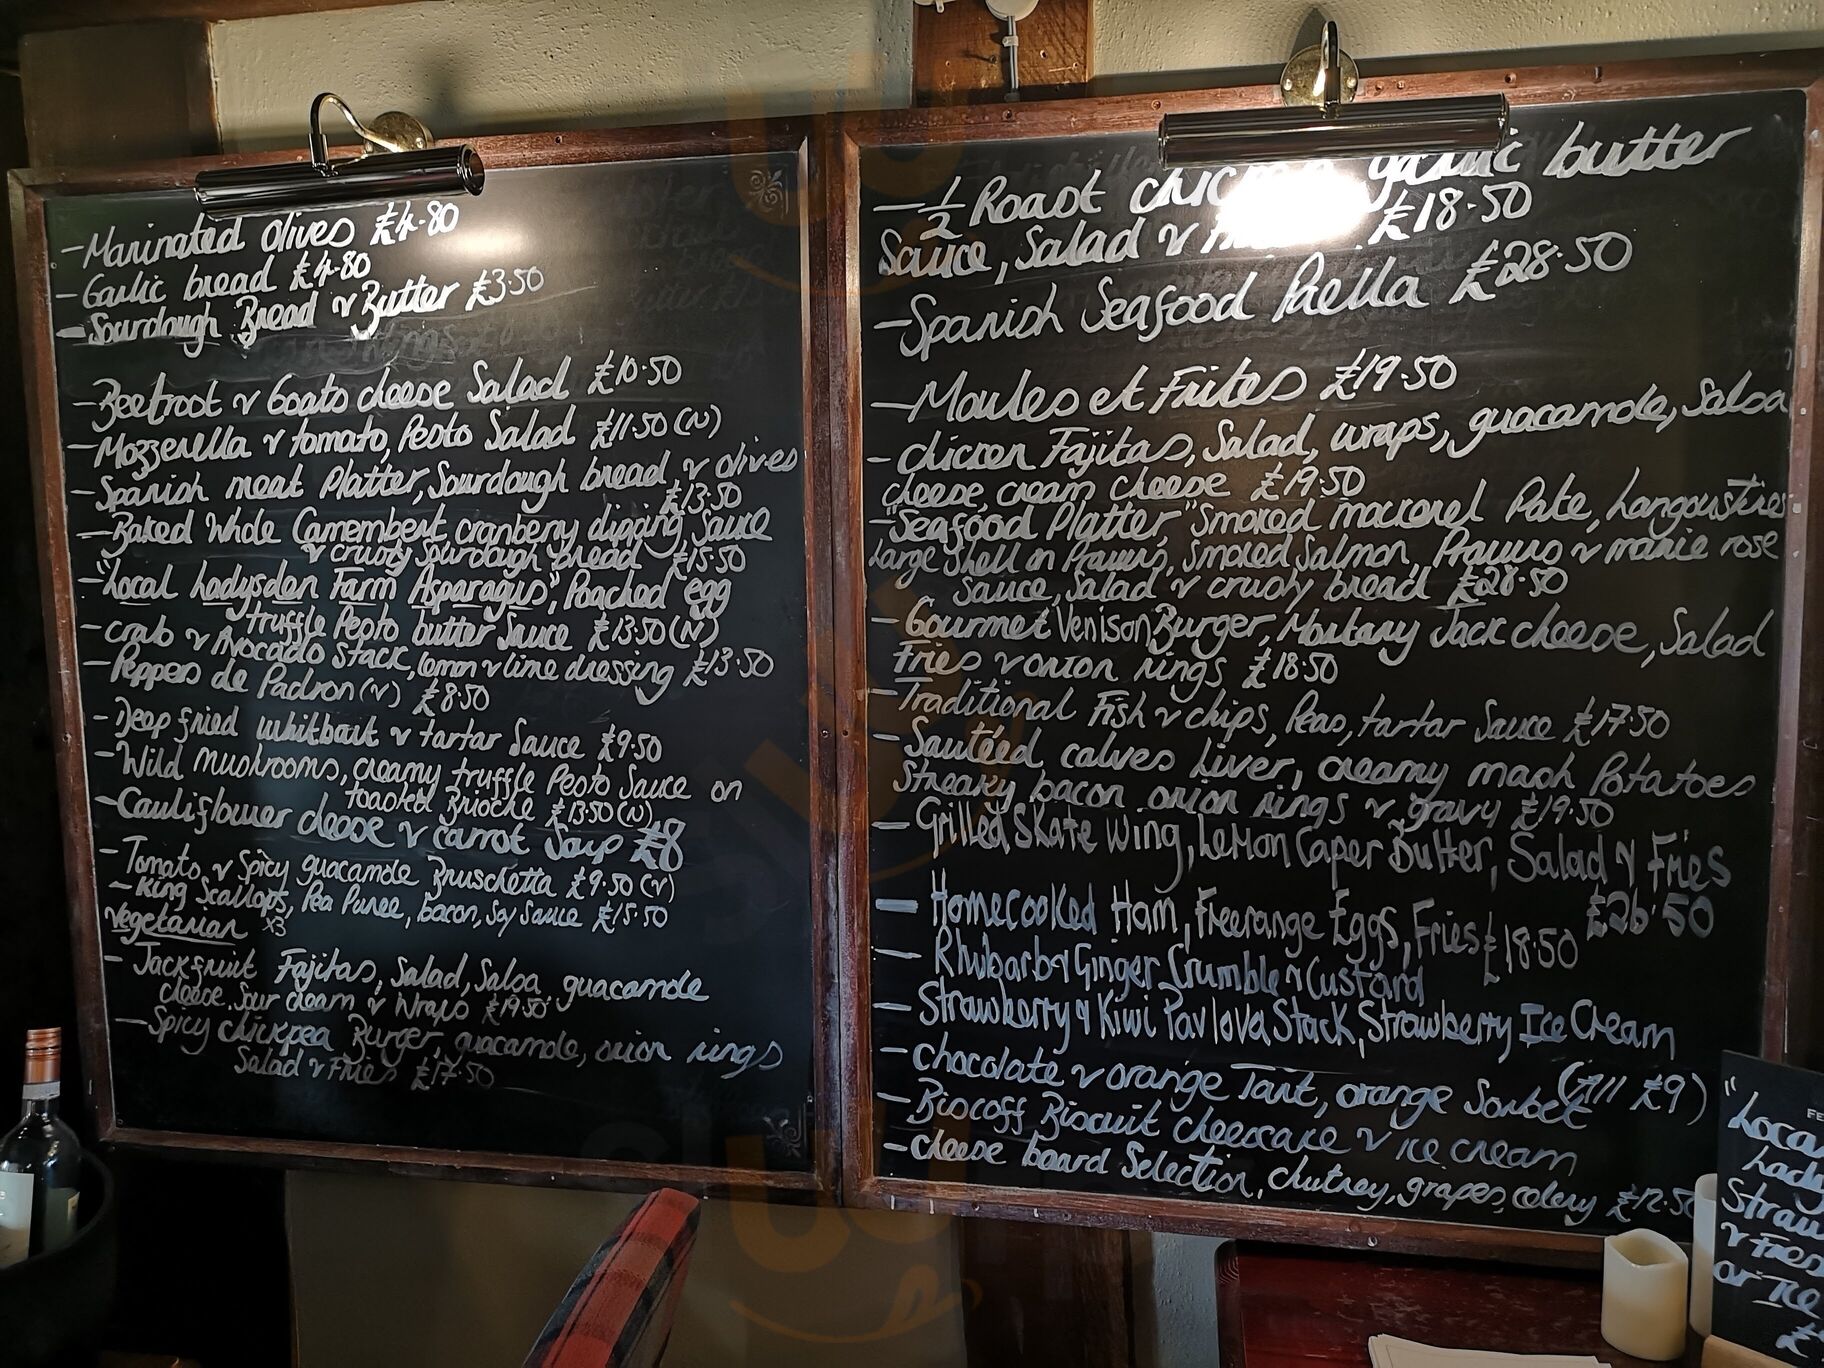 - Marinated olives £4.80
- Garlic bread £4.80
- Sourdough Bread & Butter £3.50
- Beetroot & Goats cheese Salad £10.50
- Mozzerella & tomato, Pesto Salad £11.50 (N)
- Spanish meat Platter, Sourdough bread & olives
£13.50
- Baked Whole Camembert cranberry dipping Sauce
& crusty Sourdough bread £15.50
- "Local Ladysden Farm Asparagus", Poached egg
truffle Pesto butter Sauce £13.50 (N)
- crab & Avocado Stack, lemon & lime dressing £13.50
- Peppers de Padron (v) £8.50
- Deep fried whitbait & tartar Sauce £9.50
- Wild mushrooms, creamy truffle Pesto Sauce on
toasted Brioche £13.50 (N)
- Cauliflower cheese & carrot Soup £8
- Tomato & Spicy guacamole Bruschetta £9.50 (v)
- King Scallops, Pea Puree, bacon, Soy Sauce £15.50
x3
Vegetarian
- Jackfruit Fajitas, Salad, Salsa guacamole
cheese, Sour cream & Wraps £19.50
- Spicy chickpea Burger, guacamole, onion rings
Salad & Fries £17.50
- 1/2 Roast chicken garlic butter
Sauce, Salad & £18.50
- Spanish Seafood Paella £28.50
- Moules et Frites £19.50
- Chicken Fajitas, Salad, wraps, guacamole, Salsa
cheese, cream cheese £19.50
- "Seafood Platter" Smoked mackerel Pate, Langoustines
Large Shell on Prawns, Smoked Salmon, Prawns & marie rose
Sauce, Salad & crusty bread £28.50
- Gourmet Venison Burger, Montary Jack cheese, Salad
Fries & onion rings £18.50
- Traditional Fish & chips, Peas, tartar Sauce £17.50
- Sautéed calves Liver, creamy mash Potatoes
Streaky bacon onion rings & gravy £19.50
- Grilled Skate Wing, Lemon Caper Butter, Salad & Fries
£26.50
- Homecooked Ham, Freerange Eggs, Fries £18.50
- Rhubarb & Ginger Crumble & Custard
- Strawberry & Kiwi Pavlova Stack, Strawberry Ice Cream
- Chocolate & orange Tart, orange Sorbet (All £9)
- Biscoff Biscuit cheesecake & ice cream
- Cheese board Selection, chutney, grapes, celery £12.50
FE
"Loca
Lady
Straw
& Fres
or Ice
£